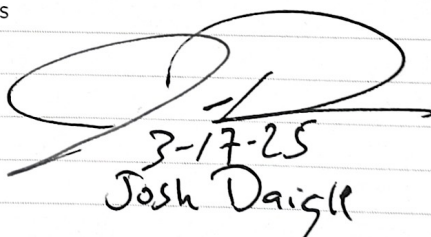 s
3-17-25
Josh Daigle